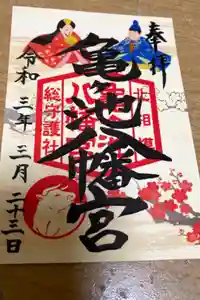 奉拝
亀ヶ池八幡宮
北相模
総守護社
令和三年三月二十三日